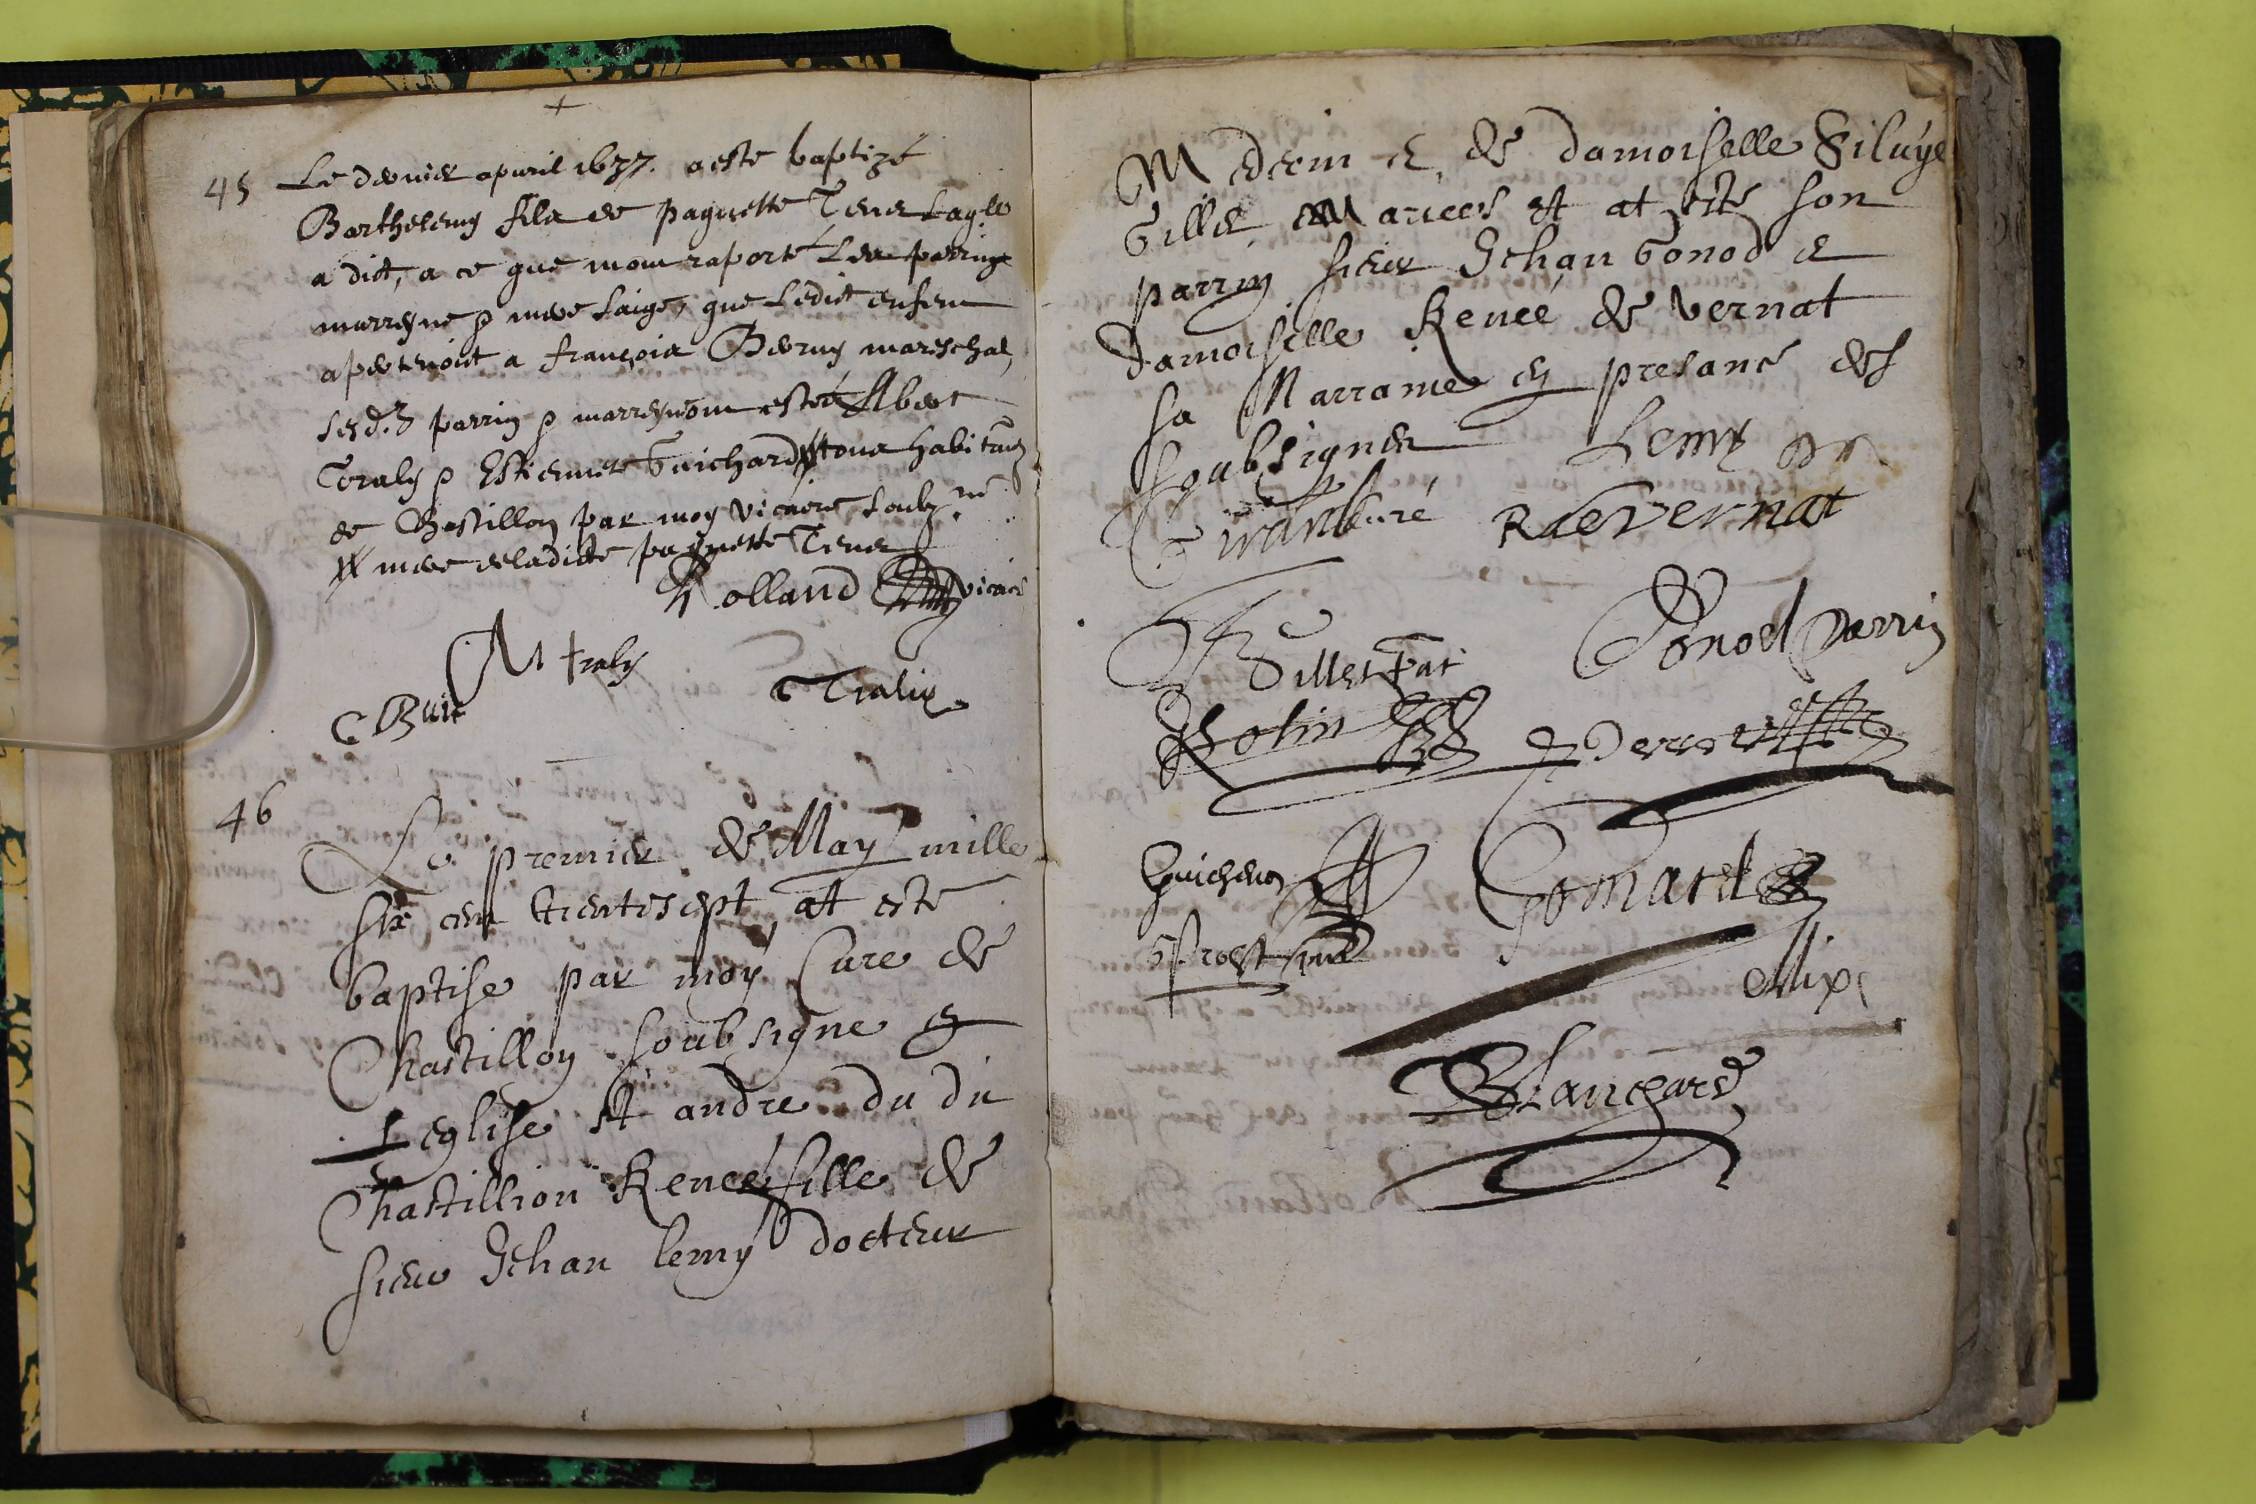 45 Le dernier apvril 1637. a este baptizé
Barthelemy filz de paquette Tener Laqlle
a dict, a ce que mont raporté Les perrin
marreyne & mere saige, que Ledict enfent
apertenoit a françois Berny mareschal,
parrin & marreyne ont estés Albert
Traly & Estiennete Guichard tous habitans
de Chastillon par moy vicaire soubz.né
mere deladicte paquette Tener
Rolland vicaire
M traly
C Buit
Traliz
46
Le premier de May mille
six cen trentesept at esté
baptise par moy Cure de
Chastillon soubsigne en
Leglise st andre du du
Chastillion Reneé fille de
sieur Jehan lemy docteur
Medecin et de damoiselle Siluye
Gillet Mariees et at este son
parrin sieur Jehan Gonod et
damoiselle Reneé de vernat
sa Marraine en presance des
soubsignes Lemy
Girard curé R devernat
Gillet
Gonod parrin
Guichenon
Comard
Blanchard